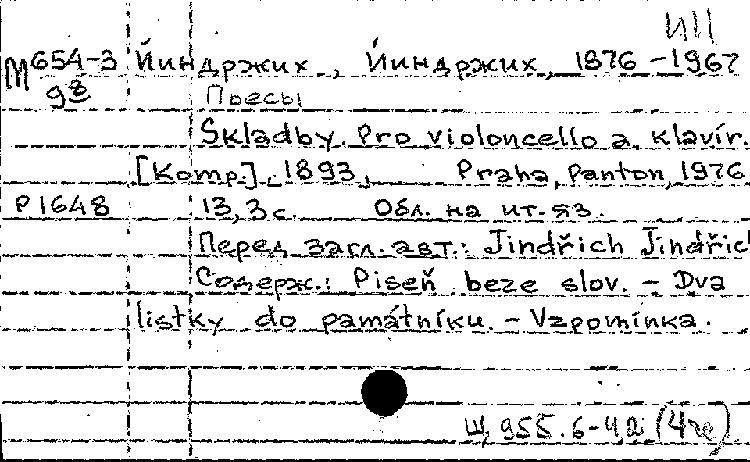 М 654-3 Йиндржих, Йиндржих, 1876-1967
98 Пьесы
Skladby. Pro violoncello a klavír.
[Komp.], 1893, Praha, Panton, 1976
P1648 13,3 с. Обл. на ит. яз.
Перед загл. авт.: Jindřich Jindřich
Содерж.: Piseň beze slov. - Dva
listky do památníku. - Vzpomínka.
Щ 955.6-42